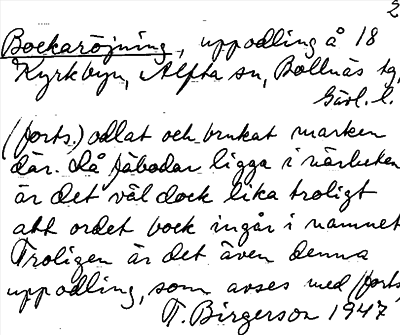 2
Bockaröjning, uppodling å 18
Kyrkbyn, Alfta sn, Bollnäs tg,
Gävl. l.
(forts.) odlat och brukat marken
där. Då fäbodar ligga i närheten
är det väl dock lika troligt
att ordet bock ingår i namnet
Troligen är det även denna
uppodling, som avses med (forts.
T. Birgerson 1947